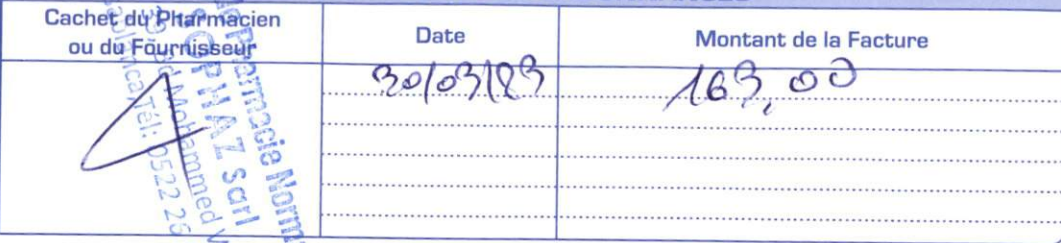 Cachet du Pharmacien
ou du Fournisseur
Date
Montant de la Facture
30/03/23
163,00
Pharmacie Norm
PHAZ sarl
Mohammed V
Tél: 0522 26